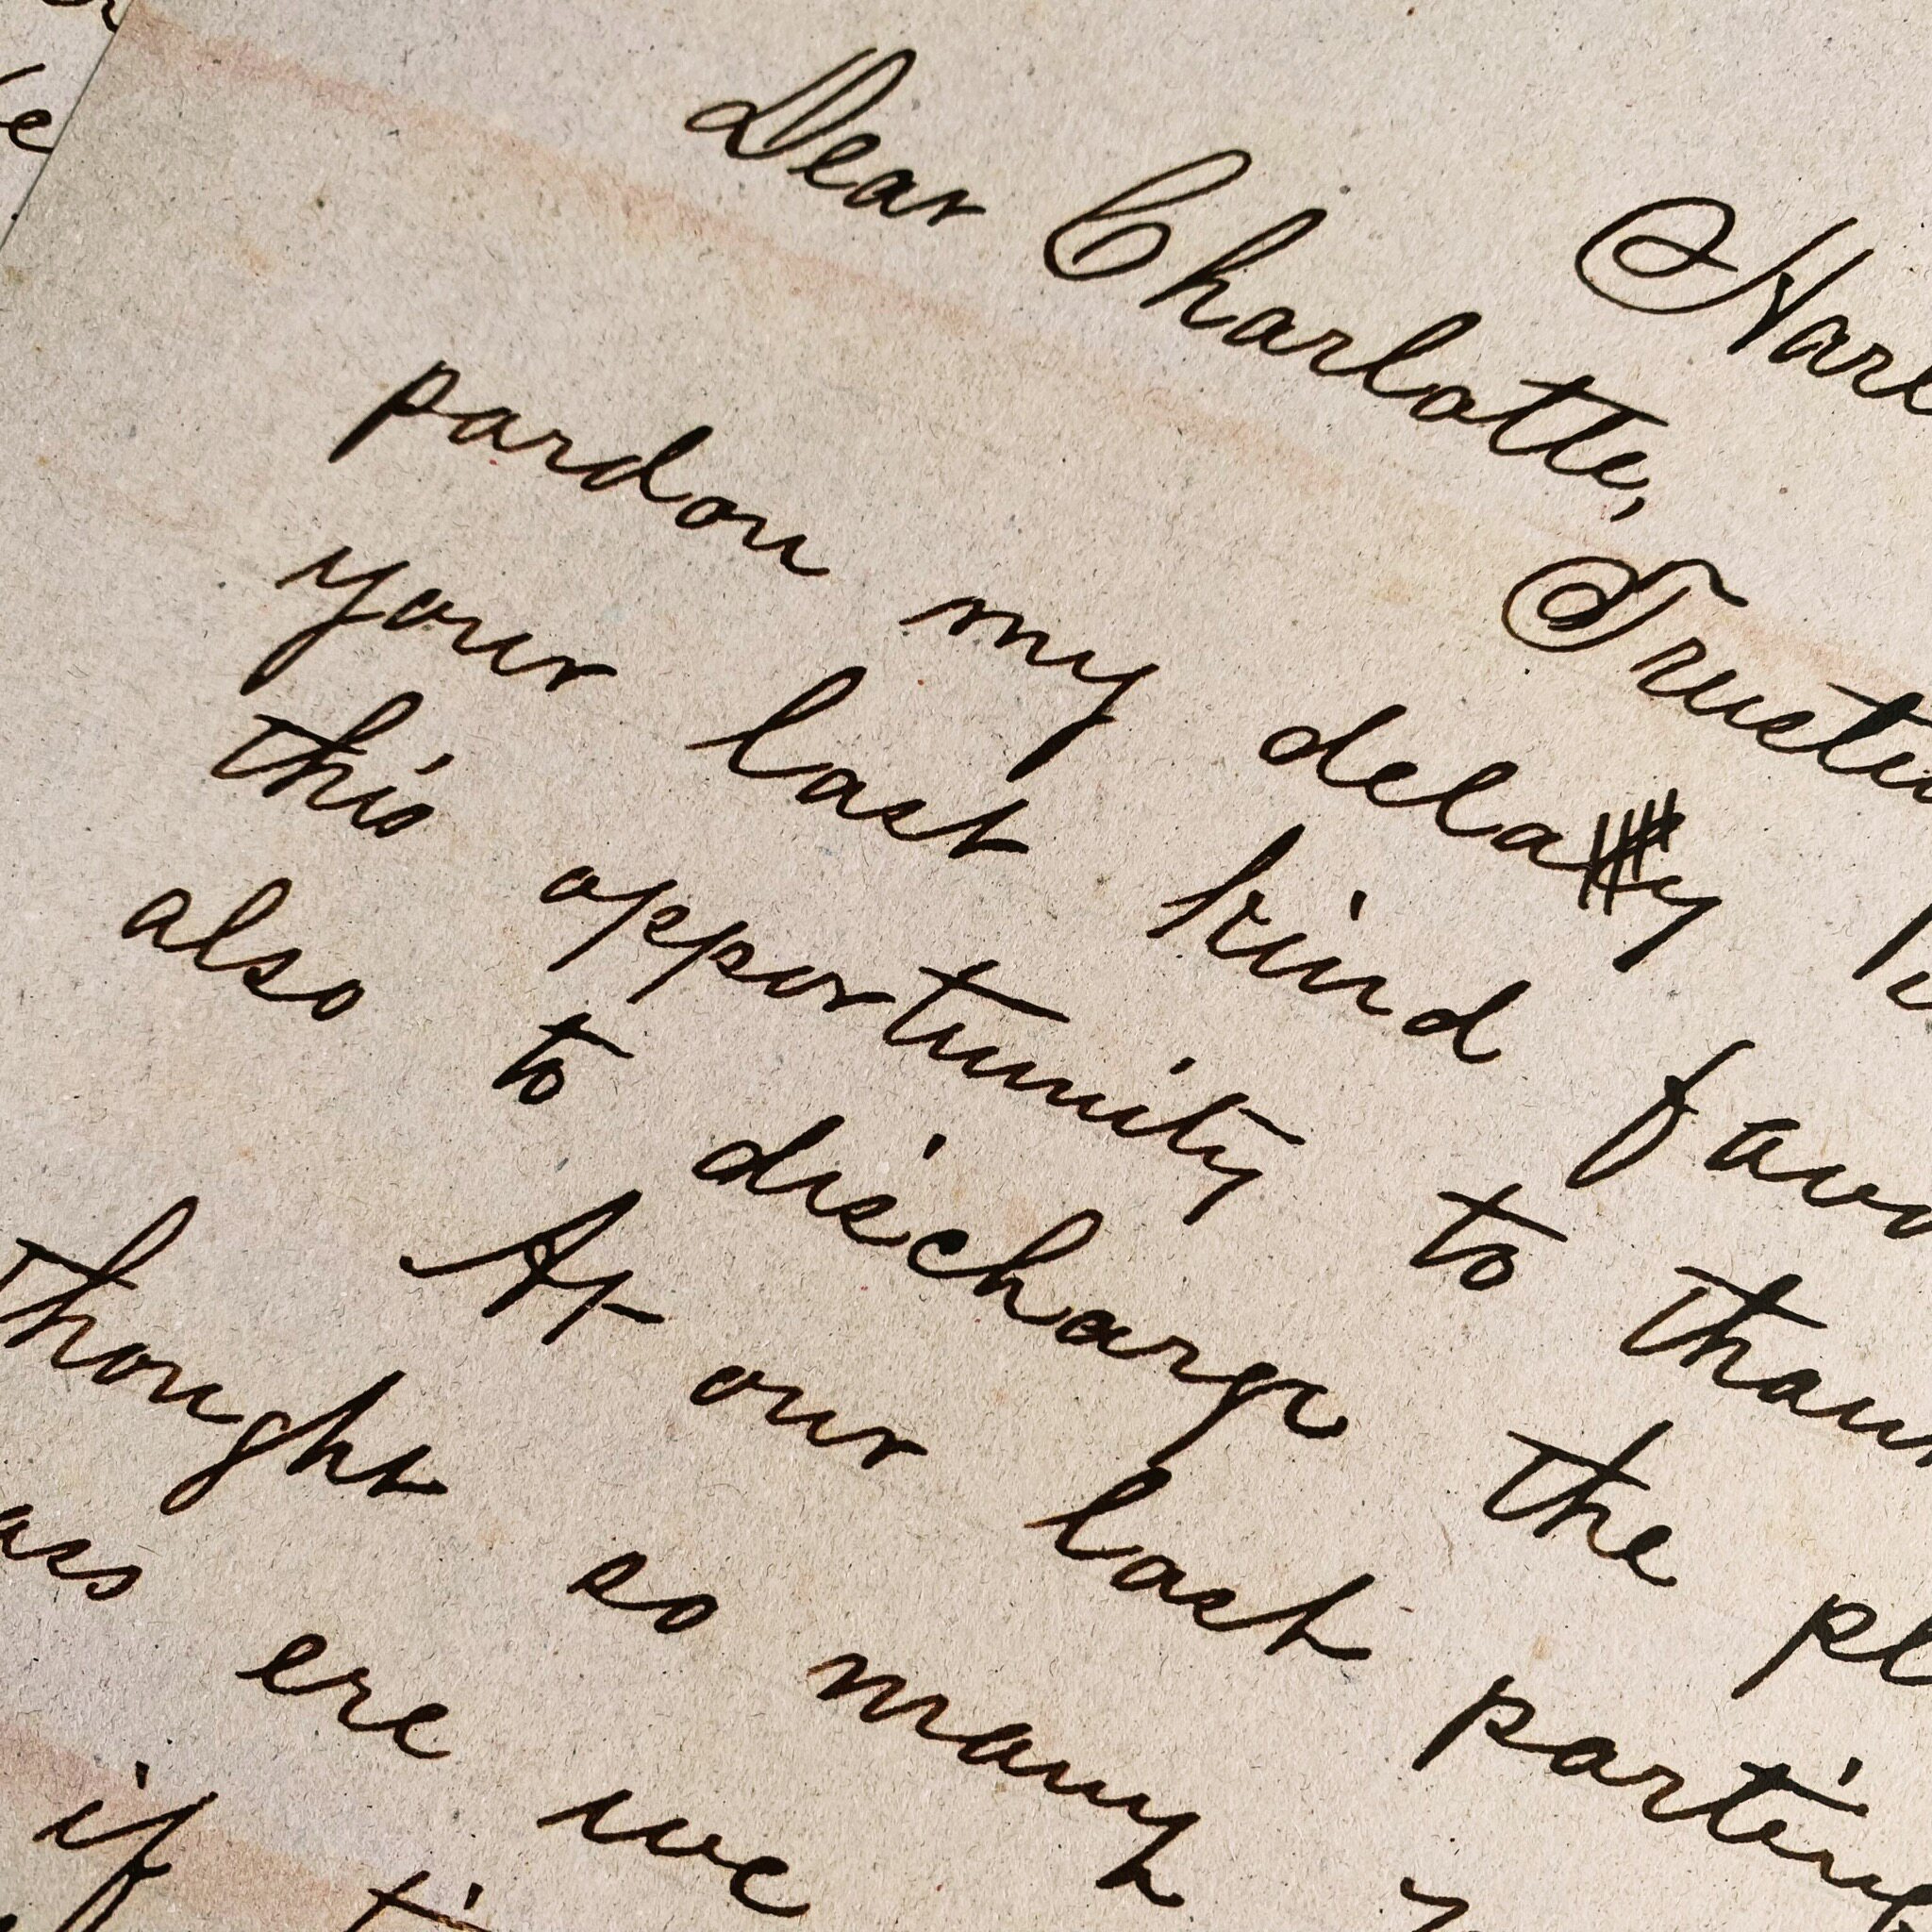 Harl
Dear Charlotte,
Trustin
pardon my delay
your last kind favo
this opportunity to than
also to discharge the pl
At our last parting
thought so many y
ass ere we
if